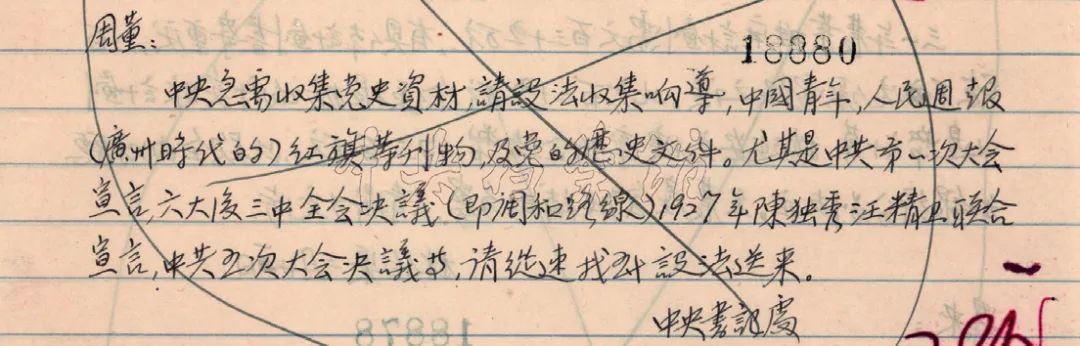 周董：
18880
中央急需收集党史資材，請設法收集响導，中國青年，人民週報
（廣州時代的）紅旗等刊物，及党的歷史文件。尤其是中共第一次大会
宣言，六大後三中全会决議（即调和路線）1927年陳独秀汪精卫联合
宣言，中共五次大会决議等，请從速找到設法送来。
中央書記處
18878